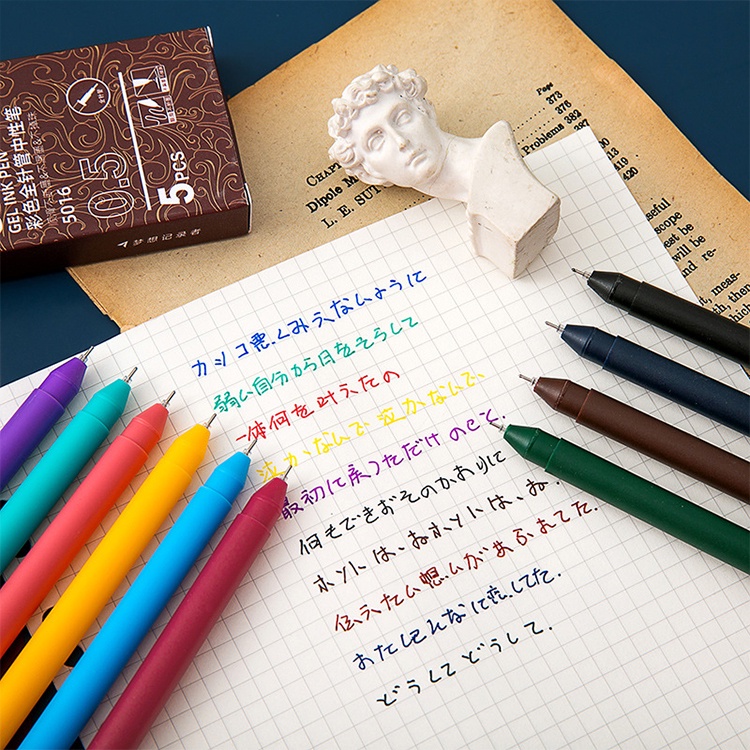 GEL INK PEN
彩色全针管中性笔
5016
0.5
5 PCS
梦想记录者
Page
373
376
Problems 382
419
420
CHAPT
Dipole M
L. E. SUT
seful
scope
est be
will be
and re-
, meas-
th, then
which
カッコ悪くみえないように
弱い自分から目をそらして
一体何を叶えたの
泣かないで泣かないで、
最初に戻っただけのこと.
何もできおそのかわりに
ホントは、ねホントは、ね.
伝えたい想いがあふれてた.
あたしそんなに恋してた.
どうしてどうして.